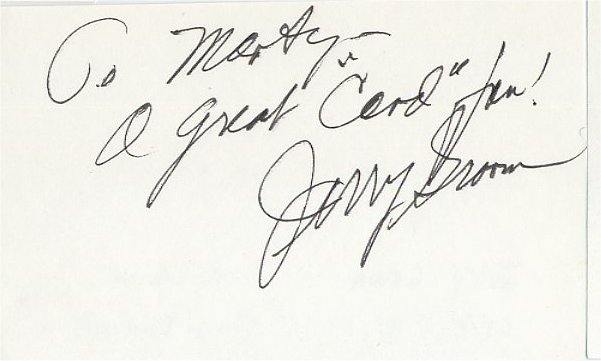 To Marty -
A great "Card" fan!
Jerry Groom